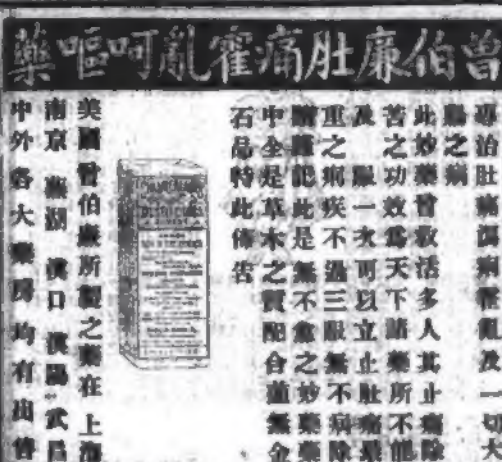 曾伯廉肚痛霍亂呵嘔藥
專治肚痛瀉痢霍亂及一切大
腸之病
此妙藥曾救活多人其止痛除
苦之功效為天下諸藥所不能
及 服一次可以立止肚痛是
重之病疾不過三服無不病除
請謹記此是無不愈之妙藥藥
中全是草木之質配合並無金
石品特此佈告
美國曾伯廉所製之藥在上海
南京 蕪湖 漢口 漢陽 武昌
中外各大藥房均有出售
CHAMBERLAIN'S